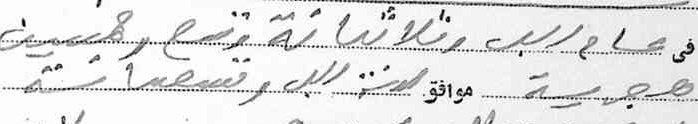 في عام الف وثلاثمائة وتسع وخمسين
هجرية موافق لسنة الف وتسعمائة